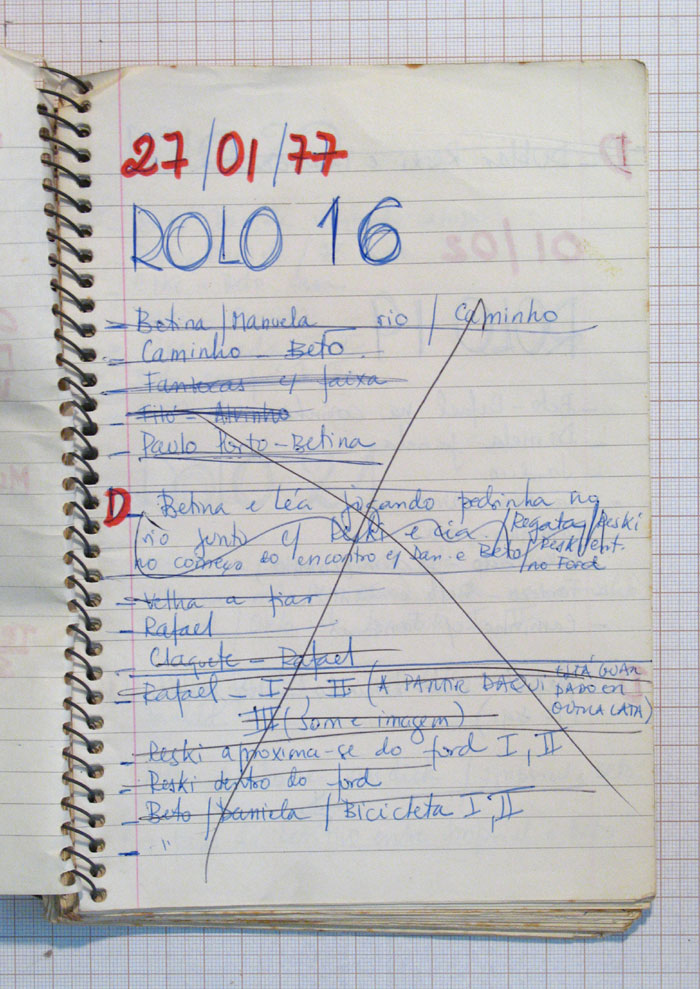 27/01/77
ROLO 16
- Betina / Manuela - rio / Caminho
- Caminho - Beto.
- Fantocas c/ faixa
- Filó - Alvinho
- Paulo Porto - Betina
D
- Betina e Léa jogando pedrinha no
rio junto c/ Reski e cia. / Regata / Reski
no começo do encontro c/ Dan. e Beto / Reski ent.
no Ford
- Velha a fiar
- Rafael
- Claquete - Rafael
- Rafael - I, II (A PARTIR DAQUI ESTÁ GUAR
DADO EM
III (som e imagem) OUTRA LATA)
- Reski aproxima-se do ford I, II
- Reski dentro do ford
- Beto / Daniela / Bicicleta I, II
- "